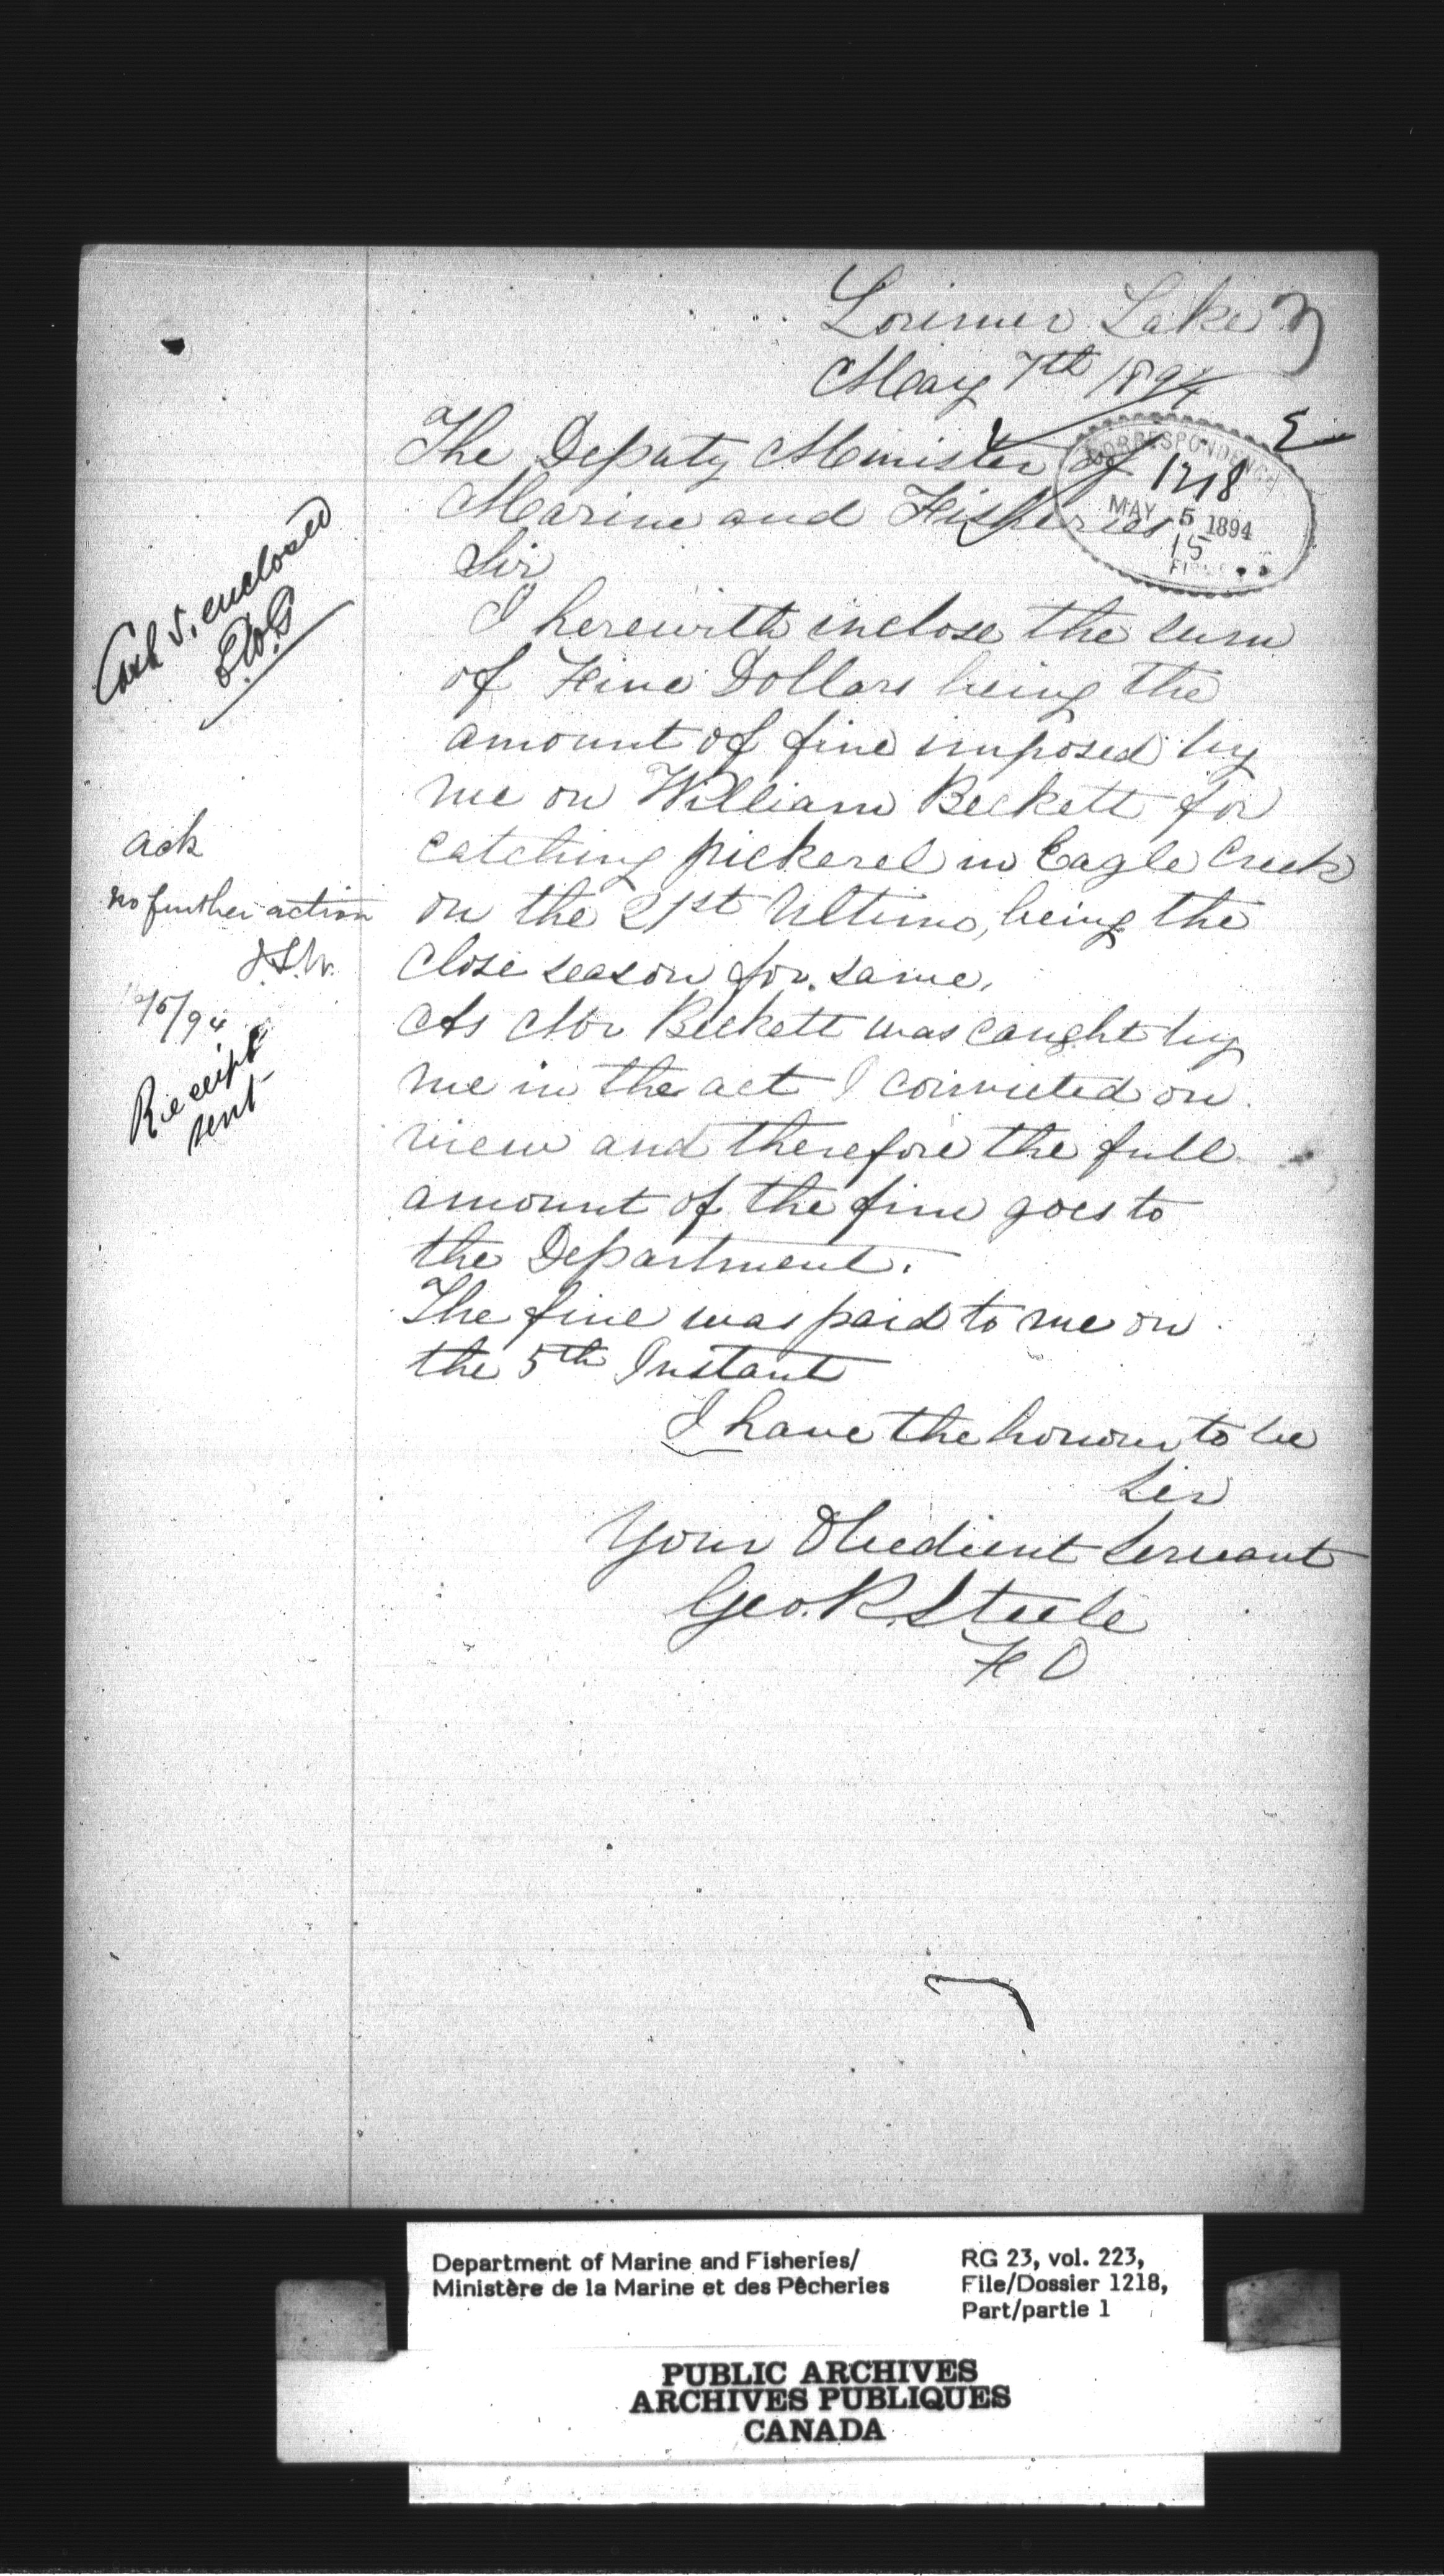 Lorimer Lake
May 7th 1894
The Deputy Minister of
Marine and Fisheries
Sir
I herewith inclose the sum
of Five Dollars being the
amount of fine imposed by
me on William Beckett for
catching pickerel in Eagle Creek
on the 21st Ultimo, being the
close season for same,
As Mr Beckett was caught by
me in the act I convicted on
view and therefore the full
amount of the fine goes to
the Department.
The fine was paid to me on
the 5th Instant
I have the honour to be
Sir
Your Obedient Servant
Geo. R. Steele
F O
CORRESPONDENCE
1218
MAY 5 1894
15
Cash 5. enclosed
ack
no further action
/5/94
Receipt
sent
Department of Marine and Fisheries/
Ministère de la Marine et des Pêcheries
RG 23, vol. 223,
File/Dossier 1218,
Part/partie 1
PUBLIC ARCHIVES
ARCHIVES PUBLIQUES
CANADA